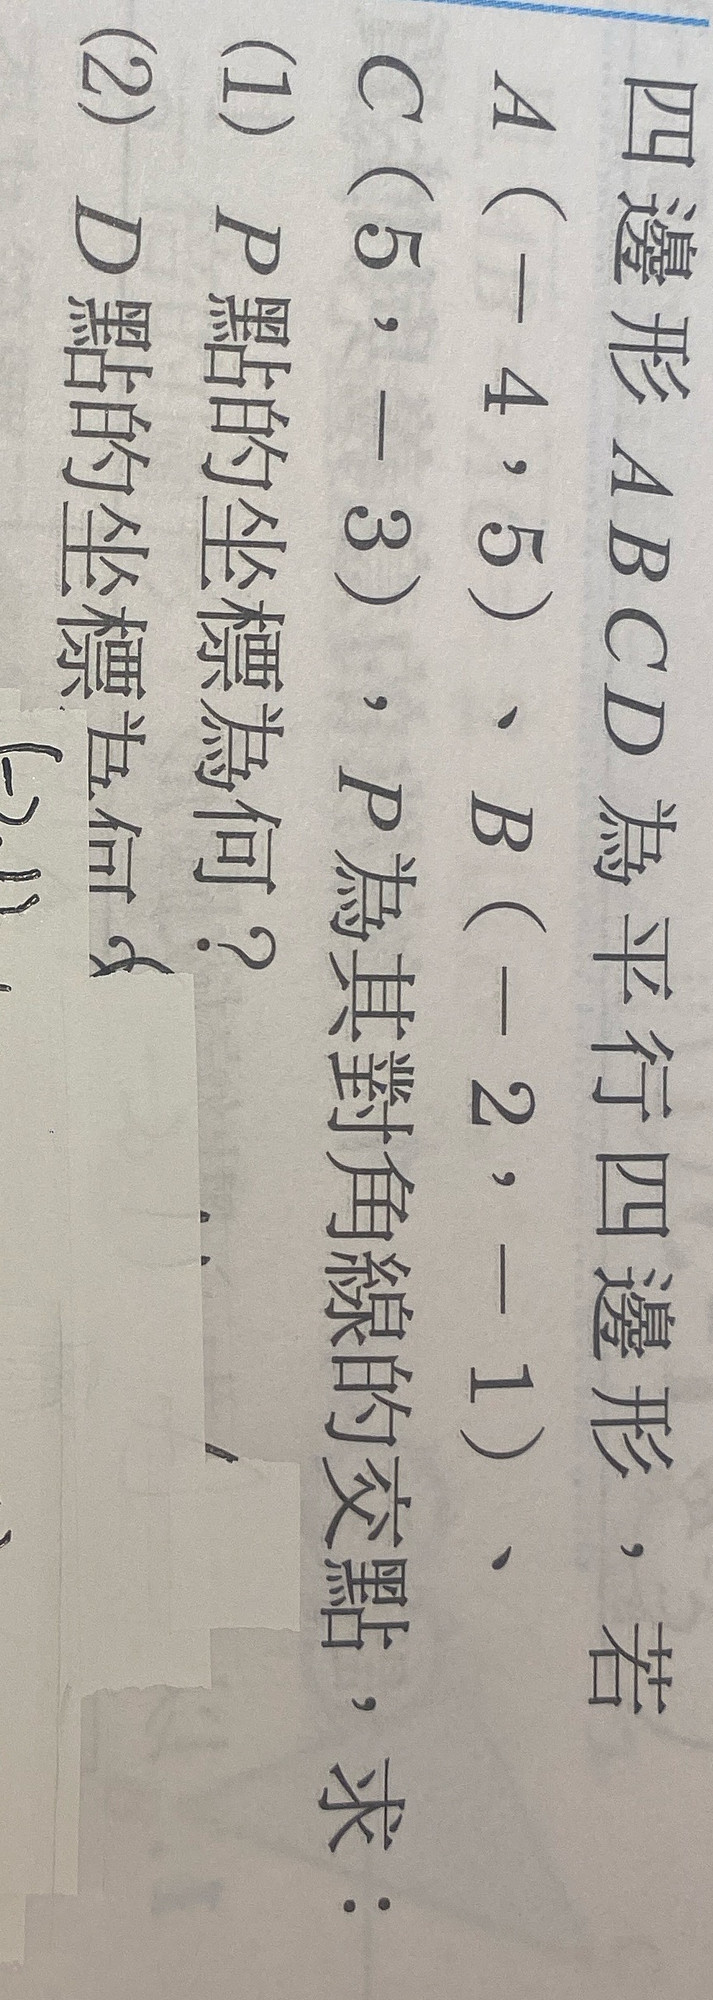 四邊形ABCD為平行四邊形，若
A（－4，5）、B（－2，－1）、
C（5，－3），P為其對角線的交點，求：
(1) P點的坐標為何？
(2) D點的坐標為何